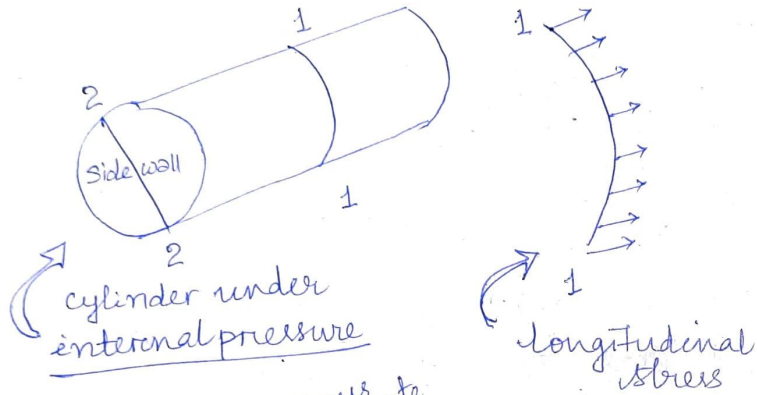 1
1
2
side wall
1
2
1
cylinder under
internal pressure
longitudinal
stress